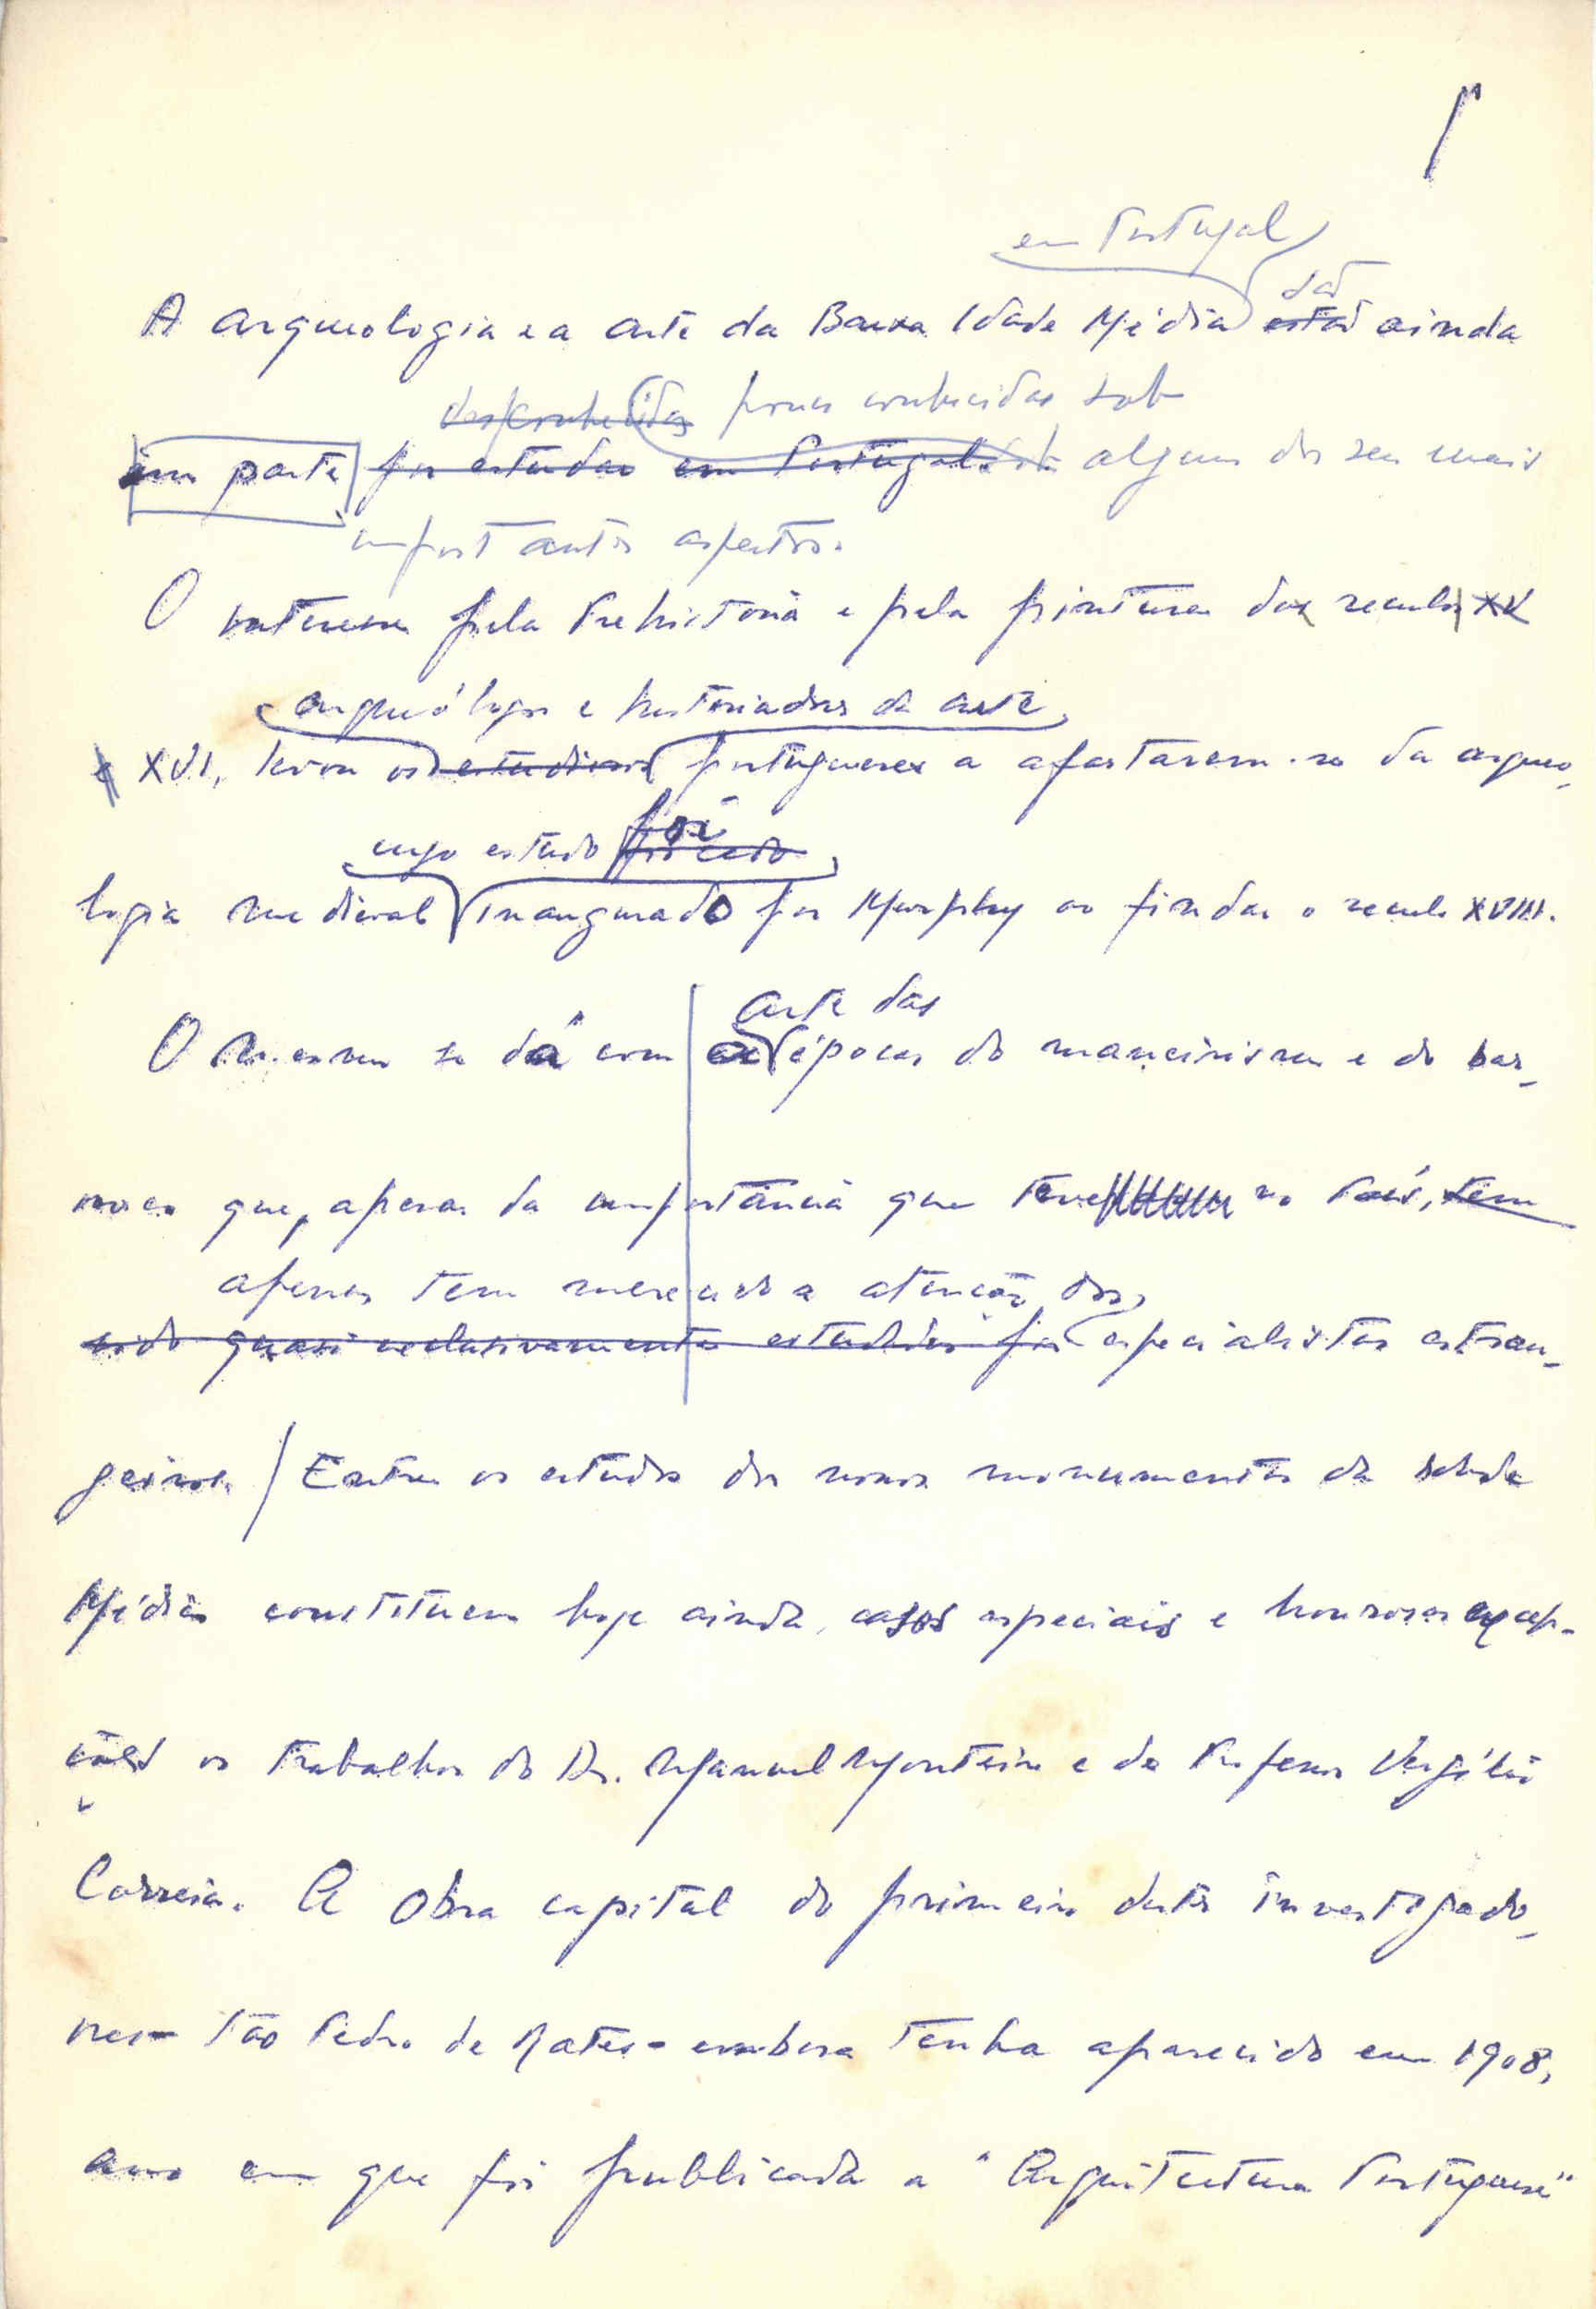 1
em Portugal
são
A arqueologia e a arte da Baixa Idade Média estão ainda
desconhecidas pouco conhecidas sob
em parte por estudar em Portugal sob alguns dos seus mais
importantes aspectos.
O interesse pela Prehistoria e pela pintura dos seculos XV
arqueólogos e historiadores da arte
e XVI, levou os estudiosos portugueses a afastarem-se da arqueo-
cujo estudo foi
logia medieval inaugurado por Murphy ao findar o seculo XVIII.
arte das
O mesmo se dá com as épocas do maneirismo e do bar-
roco que, apesar da importância que teve no País, tem
apenas tem merecido a atenção dos
sido quasi exclusivamente estudadas por especialistas estran-
geiros / Entre os estudos dos nossos monumentos da Idade
Média constituem hoje ainda, casos especiais e honrosas excep-
ções os trabalhos do Dr. Manuel Monteiro e do Professor Vergílio
Correia. A obra capital do primeiro destes investigado-
res - São Pedro de Rates - embora tenha aparecido em 1908,
ano em que foi publicada a "Arquitectura Portuguesa"